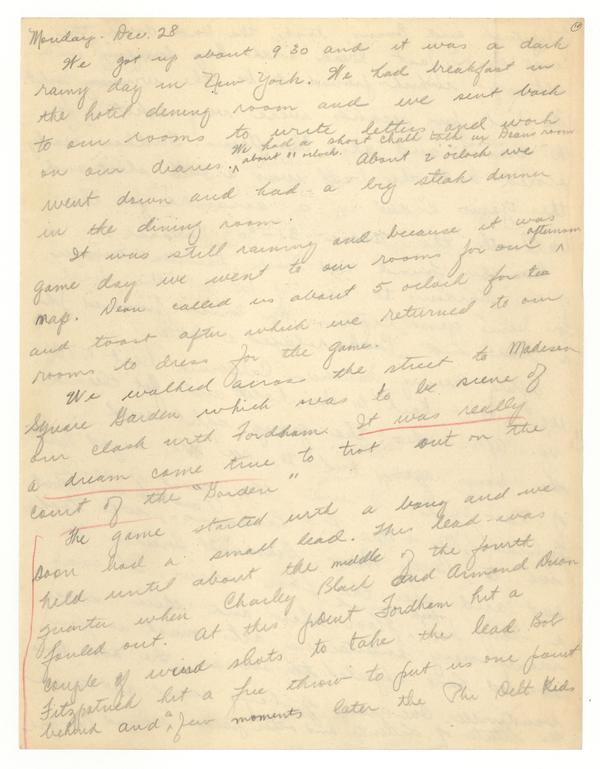 Monday - Dec. 28
We got up about 9 30 and it was a dark
rainy day in New York. We had breakfast in
the hotel dining room and we sent back
to our rooms to write letters and work
We had a short chalk talk in Deans room
on our diaries. ^ about 11 oclock. About 2 o'clock we
went down and had a big steak dinner
in the dining room.
It was still raining and because it was
afternoon
game day we went to our rooms for our ^
nap. Dean called us about 5 oclock for tea
and toast after which we returned to our
rooms to dress for the game.
We walked across the street to Madison
Square Garden which was to be scene of
our clash with Fordham. It was really
a dream come true to trot out on the
court of the "Garden"
The game started with a bang and we
soon had a small lead. This lead was
held until about the middle of the fourth
quarter when Charley Black and Armand Dixon
fouled out. At this point Fordham hit a
couple of weird shots to take the lead. Bob
Fitzpatrick hit a free throw to put us one point
behind and ^a few moments later the Phi Delt Kids